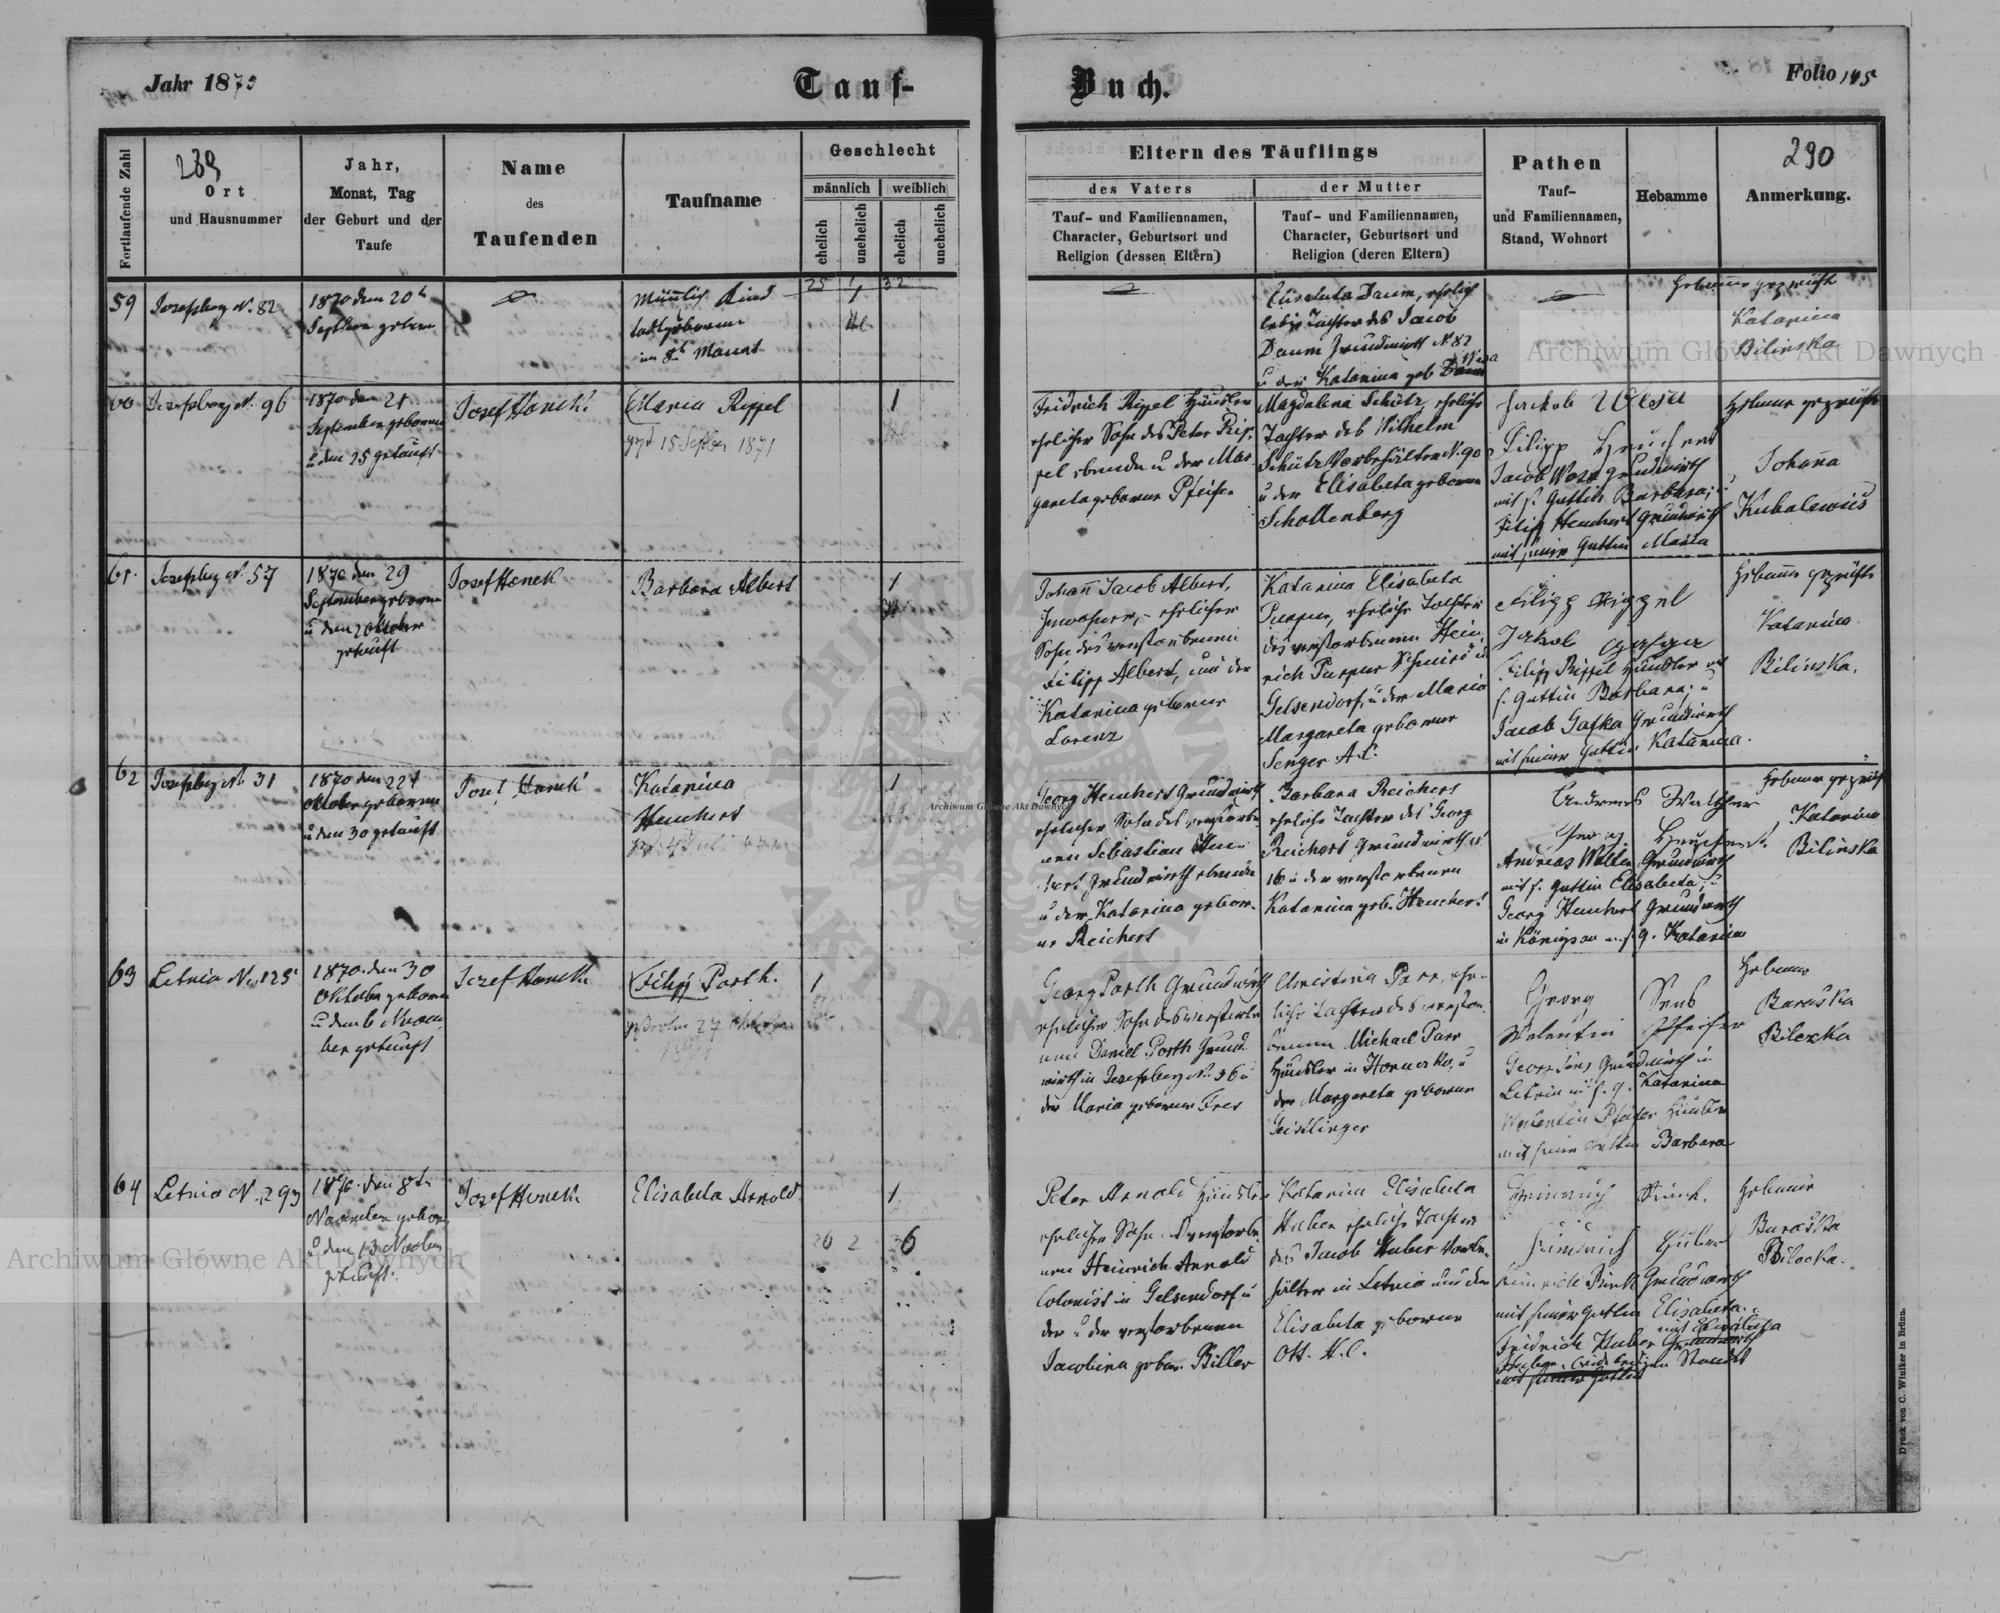 Jahr 1870
Tauf-
Buch.
Folio 145
Fortlaufende Zahl
289
Ort
und Hausnummer
Jahr,
Monat, Tag
der Geburt und der
Taufe
Name
des
Taufenden
Taufname
Geschlecht
männlich
weiblich
ehelich
unehelich
ehelich
unehelich
Eltern des Täuflings
des Vaters
der Mutter
Tauf- und Familiennamen,
Character, Geburtsort und
Religion (dessen Eltern)
Tauf- und Familiennamen,
Character, Geburtsort und
Religion (deren Eltern)
Pathen
Tauf-
und Familiennamen,
Stand, Wohnort
Hebamme
290
Anmerkung.
59
Josefsberg N. 82
1870 den 20t
September geboren
Männlich Kind
todtgeboren
im 8t Monat
25 7 32
Elisabeta Daum, ehlich
ledige Tochter des Jacob
Daum Grundwirth N 82
u der Katarina geb Wesa
Hebamme geprüfte
Katarina
Bilinska
60
Josefsberg N. 96
1870 den 21
September geboren
u den 25 getauft
Josef Hanek
Maria Rippel
gest 15 Septber 1871
1
Fridrich Ripel Häusler
ehelicher Sohn des Peter Rip-
pel ebenda u der Mar
gareta geborne Pfeifer
Magdalena Schütz, ehliche
Tochter des Wilhelm
Schütz Vorbehälter N. 90
u der Elisabeta geborne
Schollenberg
Jackob Wesa
Filipp Heuchert
Jacob Wesa Grundwirth
mit s. Gattin Barbara; u
Filip Heuchert Grundwirth
mit seiner Gattin Maria
Hebame geprüfte
Johana
Kubalewics
61.
Josefsberg N. 57
1870 den 29
September geboren
u den 2 Oktober
getauft
Josef Hanek
Barbara Albert
1
Johann Jacob Albert,
Inwohner, - ehelicher
Sohn des verstorbenen
Filipp Albert, und der
Katarina geborne
Lorenz
Katarina Elisabeta
Purpur, eheliche Tochter
des verstorbenen Hein
rich Purpur Schmied in
Gelsendorf, u der Maria
Margareta geborne
Senger A.C.
Filipp Rippel
Jakob
Filipp Rippel Häusler mit
s. Gattin Barbara; u
Jacob Gafka Grundwirth
mit seiner Gattin Katarina.
Hebamme geprüfte
Katarina
Bilinska.
62
Josefsberg N 31
1870 den 22t
Oktober geboren
u den 30 getauft
Josef Hanek
Katarina
Heuchert
1
Georg Heuchert Grundwirth
ehelicher Sohn des verstorbe
nen Sebastian Heu-
chert Grundwirth ebenda
u der Katarina gebor-
ne Reichert
Barbara Reichert
ehliche Tochter des Georg
Reichert Grundwirth N
16 u der verstorbenen
Katarina geb. Heuchert
Andreas Walther
Georg Heuchert
Andreas Walter Grundwirth
mit s. Gattin Elisabeta; u
Georg Heuchert Grundwirth
in Königsau m. s. g. Katarina
Hebame geprüfte
Katarina
Bilinska
63
Letnia N. 125
1870 den 30
Oktober geboren
u den 6 Novem
ber getauft
Josef Hanek
Filipp Porth.
1
Georg Porth Grundwirth
ehelicher Sohn des verstorbe
nen Daniel Porth Grund-
wirth in Josefsberg N. 36 u
der Maria geborne Frer
Christina Parr, ehe-
liche Tochter des verstor-
benen Michael Parr
Häusler in Horucko, u
der Margareta geborne
Geistlinger
Georg Sens
Walentin Pfeifer
Georg Sens Grundwirth in
Letnia mit s. g. Katarina
Walentin Pfeifer Häusler
mit seiner Gattin Barbara
Hebamme
Baraska
Bilecka
64
Letnia N. 293
1870 den 8t
November geboren
u den 13 Novber
getauft.
Josef Hanek
Elisabeta Arnold
1
26 2 6
Peter Arnold Häusler
ehelicher Sohn d verstorbe
nen Heinrich Arnold
Colonist in Gelsendorf u
der u der verstorbenen
Jacobina gebor. Biller
Katarina Elisabeta
Huber eheliche Tochter
des Jacob Huber Vorbe-
hälter in Letnia und der
Elisabeta geborne
Ott. H.C.
Heinrich Rink.
Heinrich Rink Grundwirth
mit seiner Gattin Elisabeta u
Fridrich Huber
Hebamme
Baraska
Bilecka.
Druck von C. Winiker in Brünn.
Archiwum Główne Akt Dawnych
Archiwum Główne Akt Dawnych
Archiwum Główne Akt Dawnych
ARCHIWUM GŁÓWNE AKT DAWNYCH